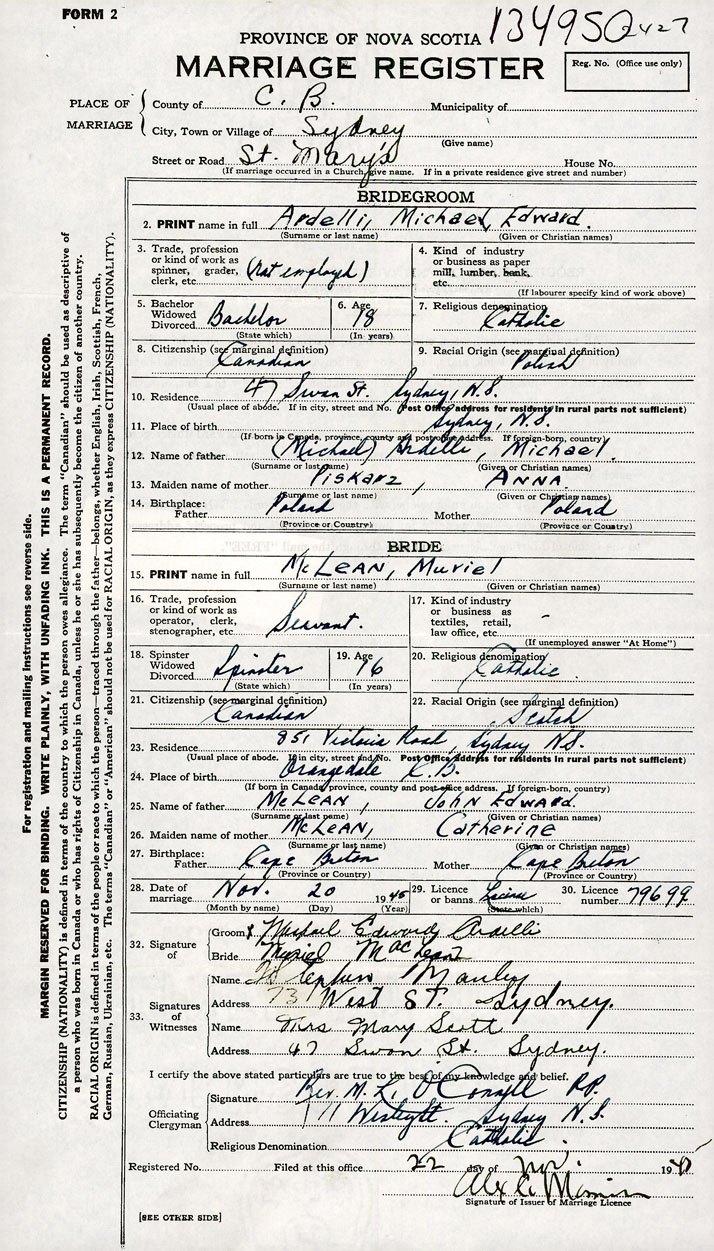 FORM 2
134950 2427
PROVINCE OF NOVA SCOTIA
MARRIAGE REGISTER
Reg. No. (Office use only)
PLACE OF MARRIAGE
County of C. B. Municipality of
City, Town or Village of Sydney
(Give name)
Street or Road St. Mary's House No.
(If marriage occurred in a Church, give name. If in a private residence give street and number)
BRIDEGROOM
2. PRINT name in full Ardelli, Michael, Edward.
(Surname or last name) (Given or Christian names)
3. Trade, profession or kind of work as spinner, grader, clerk, etc. (Not employed)
4. Kind of industry or business as paper mill, lumber, bank, etc.
(If labourer specify kind of work above)
5. Bachelor Widowed Divorced Bachelor
(State which)
6. Age 18
(In years)
7. Religious denomination Catholic
8. Citizenship (see marginal definition) Canadian
9. Racial Origin (see marginal definition) Polish
10. Residence 47 Swan St. Sydney, N.S.
(Usual place of abode. If in city, street and No. Post Office address for residents in rural parts not sufficient)
11. Place of birth Sydney, N.S.
(If born in Canada, province, county and post office address. If foreign-born, country)
12. Name of father (Michael) Ardelli, Michael.
(Surname or last name) (Given or Christian names)
13. Maiden name of mother Piskarz, ANNA
(Surname or last name) (Given or Christian names)
14. Birthplace: Father Poland Mother Poland
(Province or Country) (Province or Country)
BRIDE
15. PRINT name in full McLEAN, Muriel
(Surname or last name) (Given or Christian names)
16. Trade, profession or kind of work as operator, clerk, stenographer, etc. Servant.
17. Kind of industry or business as textiles, retail, law office, etc. -
(If unemployed answer "At Home")
18. Spinster Widowed Divorced Spinster
(State which)
19. Age 16
(In years)
20. Religious denomination Catholic
21. Citizenship (see marginal definition) Canadian
22. Racial Origin (see marginal definition) Scotch
23. Residence 851 Victoria Road, Sydney N.S.
(Usual place of abode. If in city, street and No. Post Office address for residents in rural parts not sufficient)
24. Place of birth Orangedale C.B.
(If born in Canada, province, county and post office address. If foreign-born, country)
25. Name of father McLEAN, John Edward.
(Surname or last name) (Given or Christian names)
26. Maiden name of mother McLEAN, Catherine
(Surname or last name) (Given or Christian names)
27. Birthplace: Father Cape Breton Mother Cape Breton
(Province or Country) (Province or Country)
28. Date of marriage Nov. 20 1945
(Month by name) (Day) (Year)
29. Licence or banns License
(State which)
30. Licence number 79699
32. Signature of
Groom Michael Edward Ardelli
Bride Muriel MacLean
33. Signatures of Witnesses
Name Stephen Manley
Address 731 West St. Sydney.
Name Mrs Mary Scott
Address 47 Swan St. Sydney.
I certify the above stated particulars are true to the best of my knowledge and belief.
Officiating Clergyman
Signature Rev. M. L. O'Connell P.P.
Address Sydney N.S.
Religious Denomination Catholic.
Registered No. Filed at this office 22 day of Nov. 1945
Signature of Issuer of Marriage Licence
[SEE OTHER SIDE]
For registration and mailing instructions see reverse side.
MARGIN RESERVED FOR BINDING. WRITE PLAINLY, WITH UNFADING INK. THIS IS A PERMANENT RECORD.
CITIZENSHIP (NATIONALITY) is defined in terms of the country to which the person owes allegiance. The term "Canadian" should be used as descriptive of
a person who was born in Canada or who has rights of Citizenship in Canada, unless he or she has subsequently become the citizen of another country.
RACIAL ORIGIN is defined in terms of the people or race to which the person—traced through the father—belongs, whether English, Irish, Scottish, French,
German, Russian, Ukrainian, etc. The terms "Canadian" or "American" should not be used for RACIAL ORIGIN, as they express CITIZENSHIP (NATIONALITY).